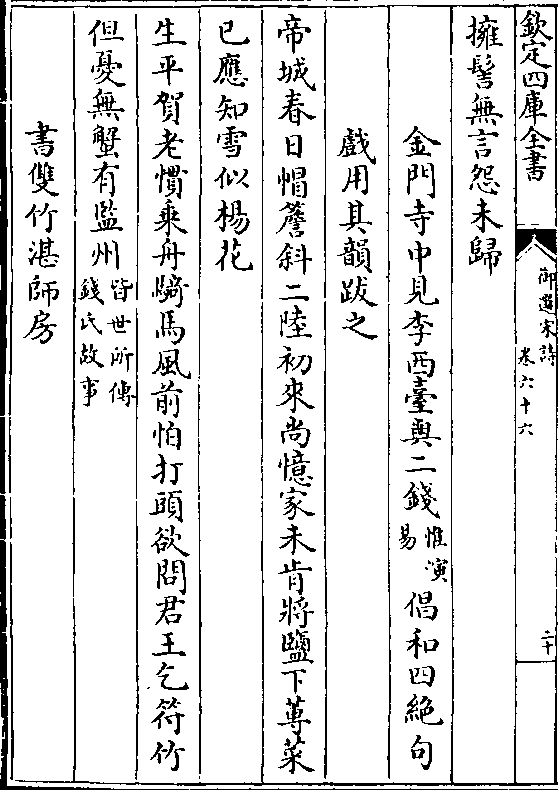 欽定四庫全書
御選宋詩
卷六十六
二十
擁髻無言怨未歸
金門寺中見李西臺與二錢惟演易倡和四絶句
戲用其韻跋之
帝城春日㡌簷斜二陸初來尚憶家未肯將鹽下蓴菜
已應知雪似楊花
生平賀老慣乘舟𮪍馬風前怕打頭欲問君王乞符竹
但憂無蟹有監州皆世所傳錢氏故事
書雙竹湛師房